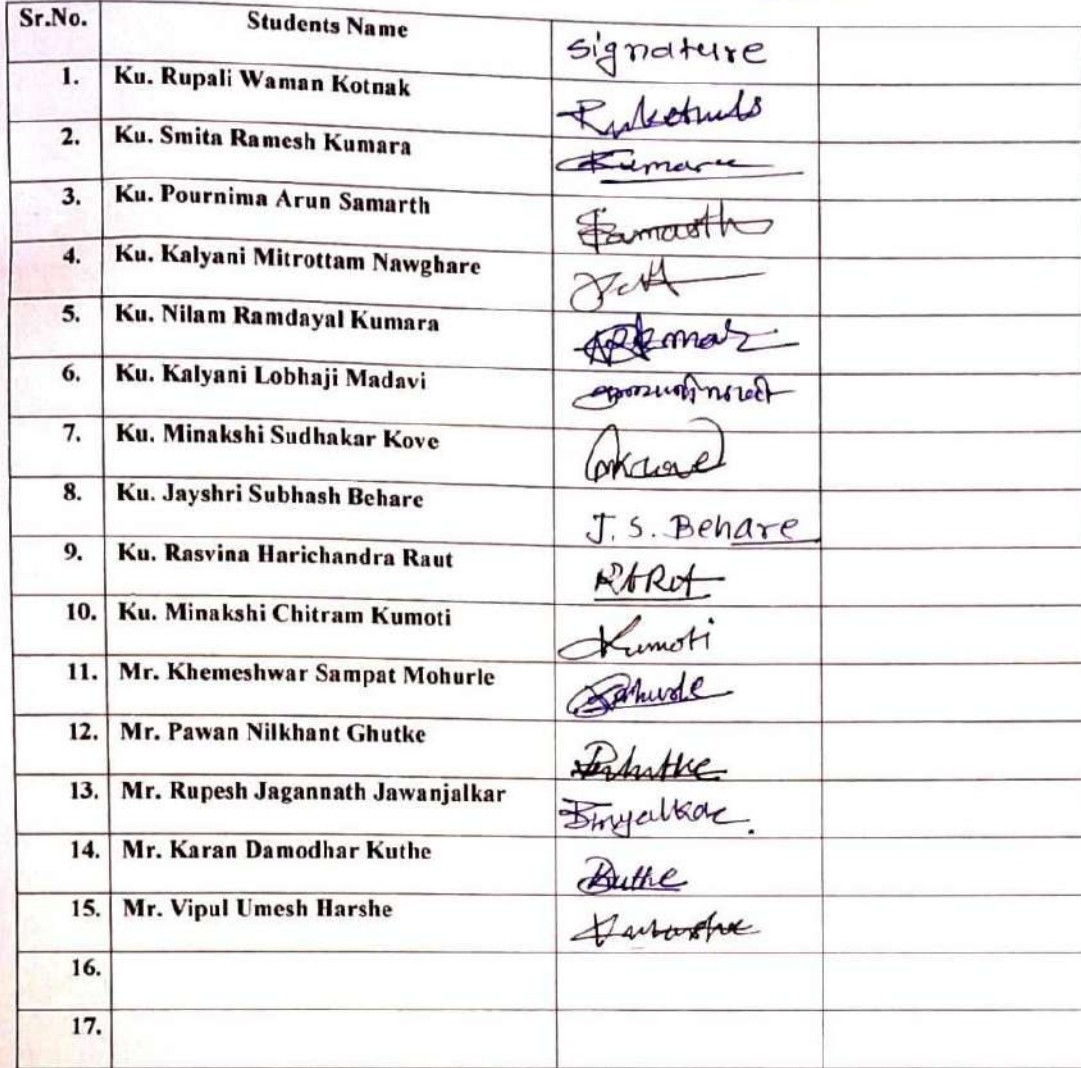 Sr.No. Students Name signature
1. Ku. Rupali Waman Kotnak
2. Ku. Smita Ramesh Kumara Kumare
3. Ku. Pournima Arun Samarth Samarth
4. Ku. Kalyani Mitrottam Nawghare
5. Ku. Nilam Ramdayal Kumara
6. Ku. Kalyani Lobhaji Madavi
7. Ku. Minakshi Sudhakar Kove
8. Ku. Jayshri Subhash Behare J. S. Behare
9. Ku. Rasvina Harichandra Raut
10. Ku. Minakshi Chitram Kumoti Kumoti
11. Mr. Khemeshwar Sampat Mohurle
12. Mr. Pawan Nilkhant Ghutke
13. Mr. Rupesh Jagannath Jawanjalkar
14. Mr. Karan Damodhar Kuthe Kuthe
15. Mr. Vipul Umesh Harshe
16.
17.